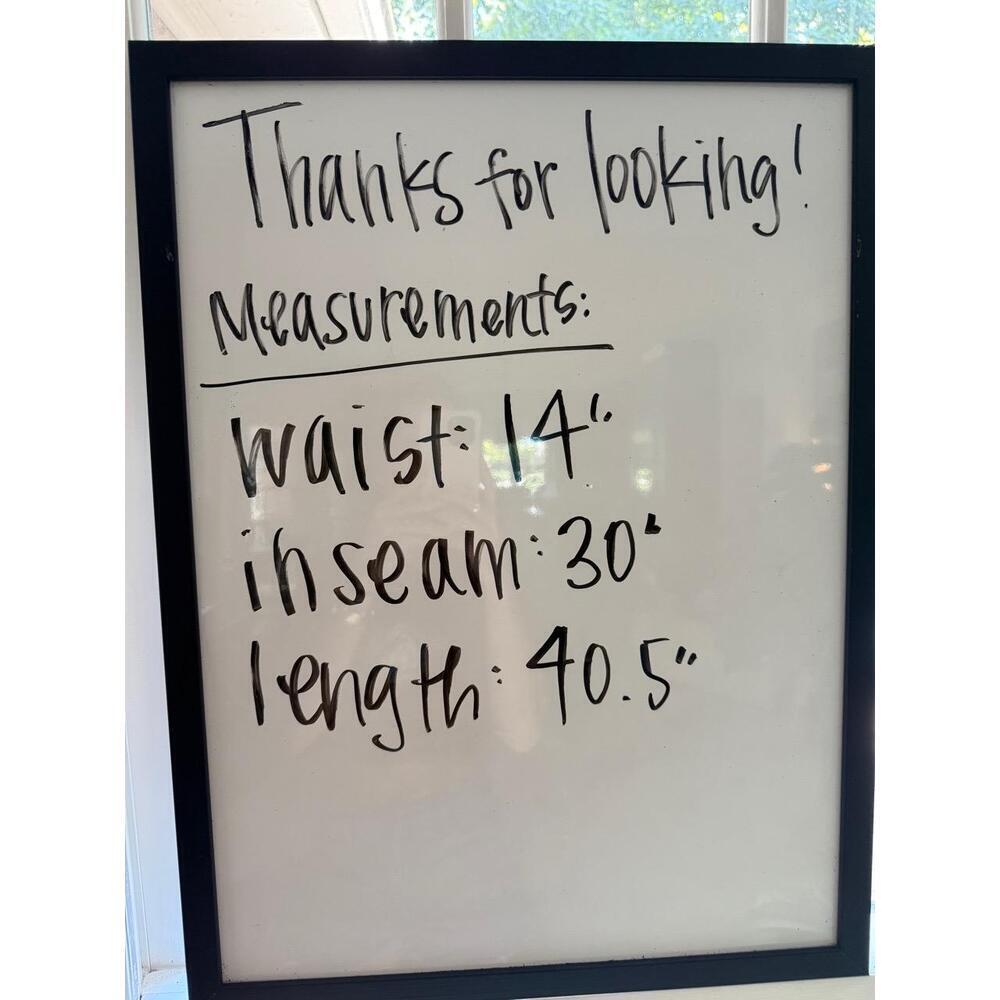 Thanks for looking!
Measurements:
waist: 14"
inseam: 30"
length: 40.5"